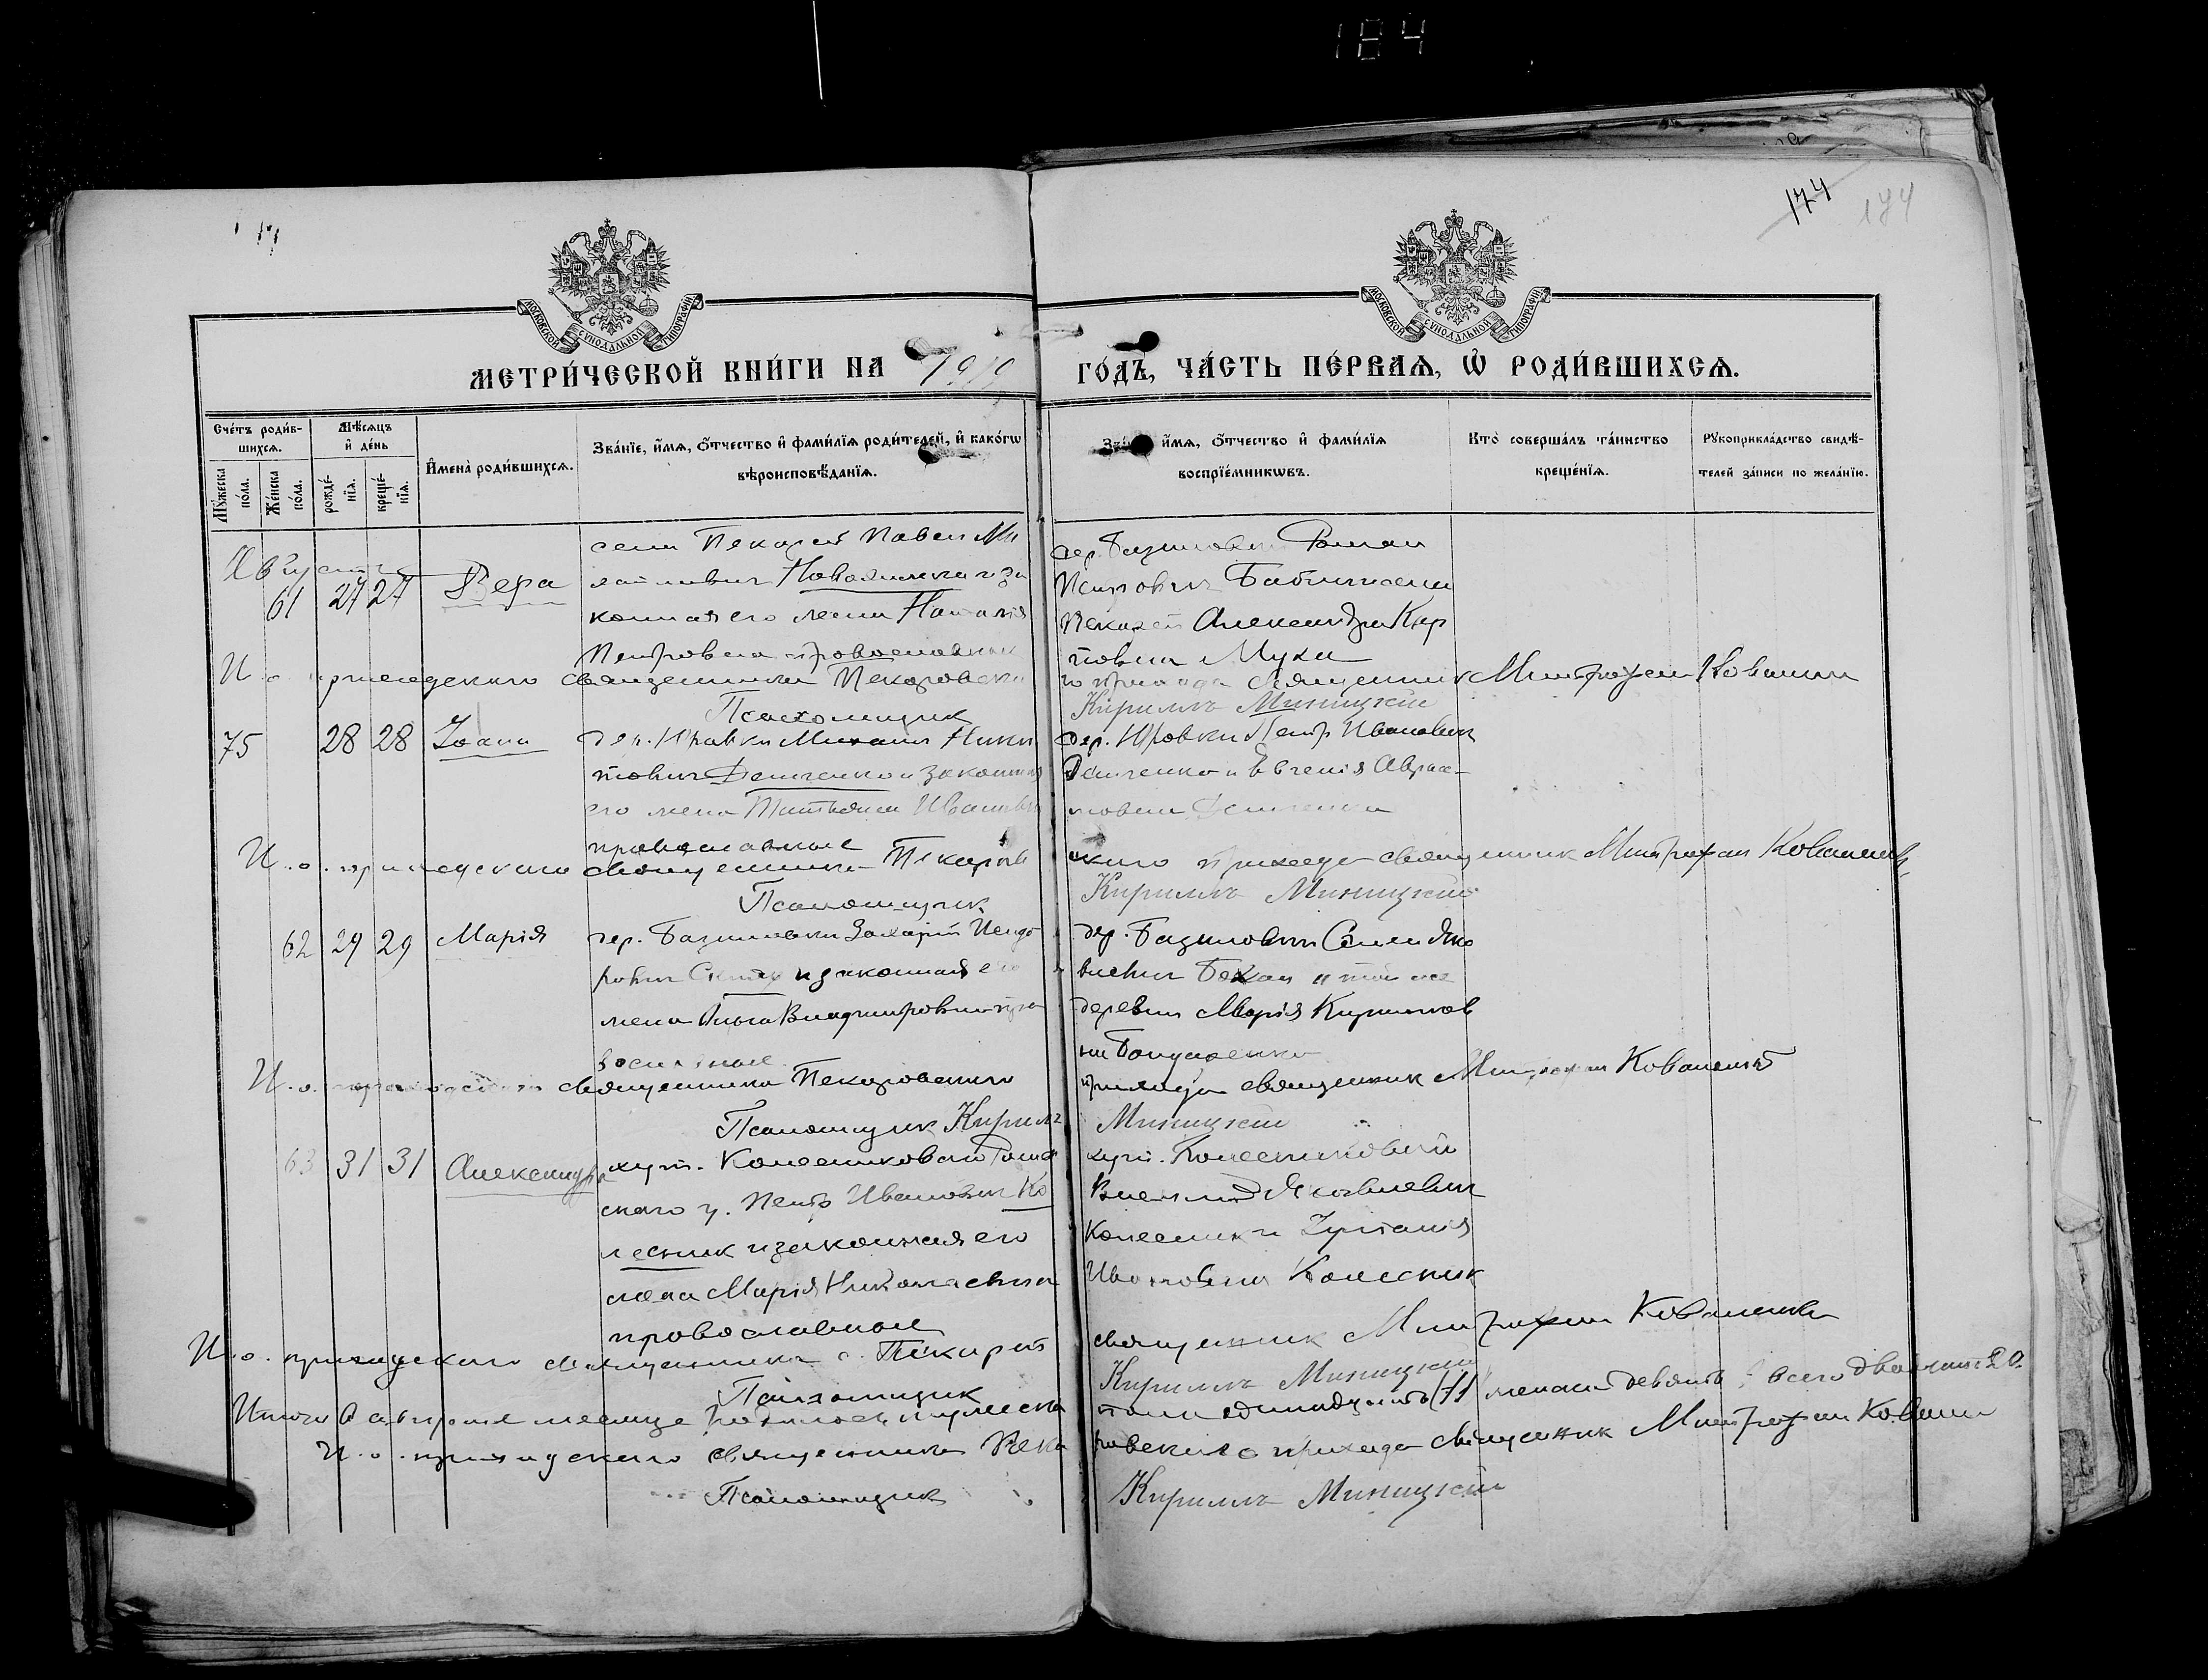 184
174
174
МОСКОВСКОЙ СѴНОДАЛЬНОЙ ТИПОГРАФІИ
МОСКОВСКОЙ СѴНОДАЛЬНОЙ ТИПОГРАФІИ
МЕТРИ́ЧЕСКОЙ КНИ́ГИ НА 1919 ГО́ДЪ, ЧА́СТЬ ПЕ́РВАѦ, Ѽ РОДИ́ВШИХСѦ.
Сче́тъ роди́вшихсѧ.
Мꙋ́жеска по́ла.
Же́нска по́ла.
Мѣ́сѧцъ и҆ де́нь
рожде́нїѧ.
креще́нїѧ.
И҆мена̀ роди́вшихсѧ.
Зва́нїе, и҆́мѧ, ѻ҆́тчество и҆ фами́лїѧ роди́телей, и҆ како́гѡ вѣроисповѣ́данїѧ.
и҆́мѧ, ѻ҆́тчество и҆ фами́лїѧ воспрїе́мникѡвъ.
Кто̀ соверша́лъ та́инство креще́нїѧ.
Рꙋкоприкла́дство свидѣ́телей за́писи по жела́нїю.
Августъ
61 27 27 Вера
села Пекарей Павел Ми
хайлович и за
конная его жена Наталія
Петровна православные
дер. Роман
Петрович
Пекарей Александра Кар
повна Муха
И. о. приходского священника Пекаровского прихода священник Митрофан Коваленко
Псаломщик Кирилл Миницкий
75 28 28 Іоанн
дер. Юровки Михаил Ники
тович Демченко и законная
его жена Татьяна Ивановна
православные
дер. Юровки Петр Иванович
Демченко и Евгенія Авра-
мовна Демченко
И. о. приходского священника Пекаровского прихода священник Митрофан Коваленко
Псаломщик Кирилл Миницкий
62 29 29 Марія
дер. Захарій
и законная его
жена Ольга Владимировна пра
вославные
дер. Яко
влевич и той же
деревни Марія Кирилов
на Бондаренко
И. о. приходского священника Пекаровского прихода священник Митрофан Коваленко
Псаломщик Кирилл Миницкий
63 31 31 Александра
хут. Колесниковой
ского у. Петр Иванович Ко
лесник и законная его
жена Марія Николаевна
православные
хут. Колесниковой
Яковлевич
Колесник и
Ивановна Колесник
И. о. приходского священника с. Пекарей священник Митрофан Коваленко
Псаломщик Кирилл Миницкий
Итого в августе месяце родилось мужеска пола одинадцать (11) женска девять, всего двадцать 20.
И. о. приходского священника Пекаровского прихода священник Митрофан Коваленко
Псаломщик Кирилл Миницкий